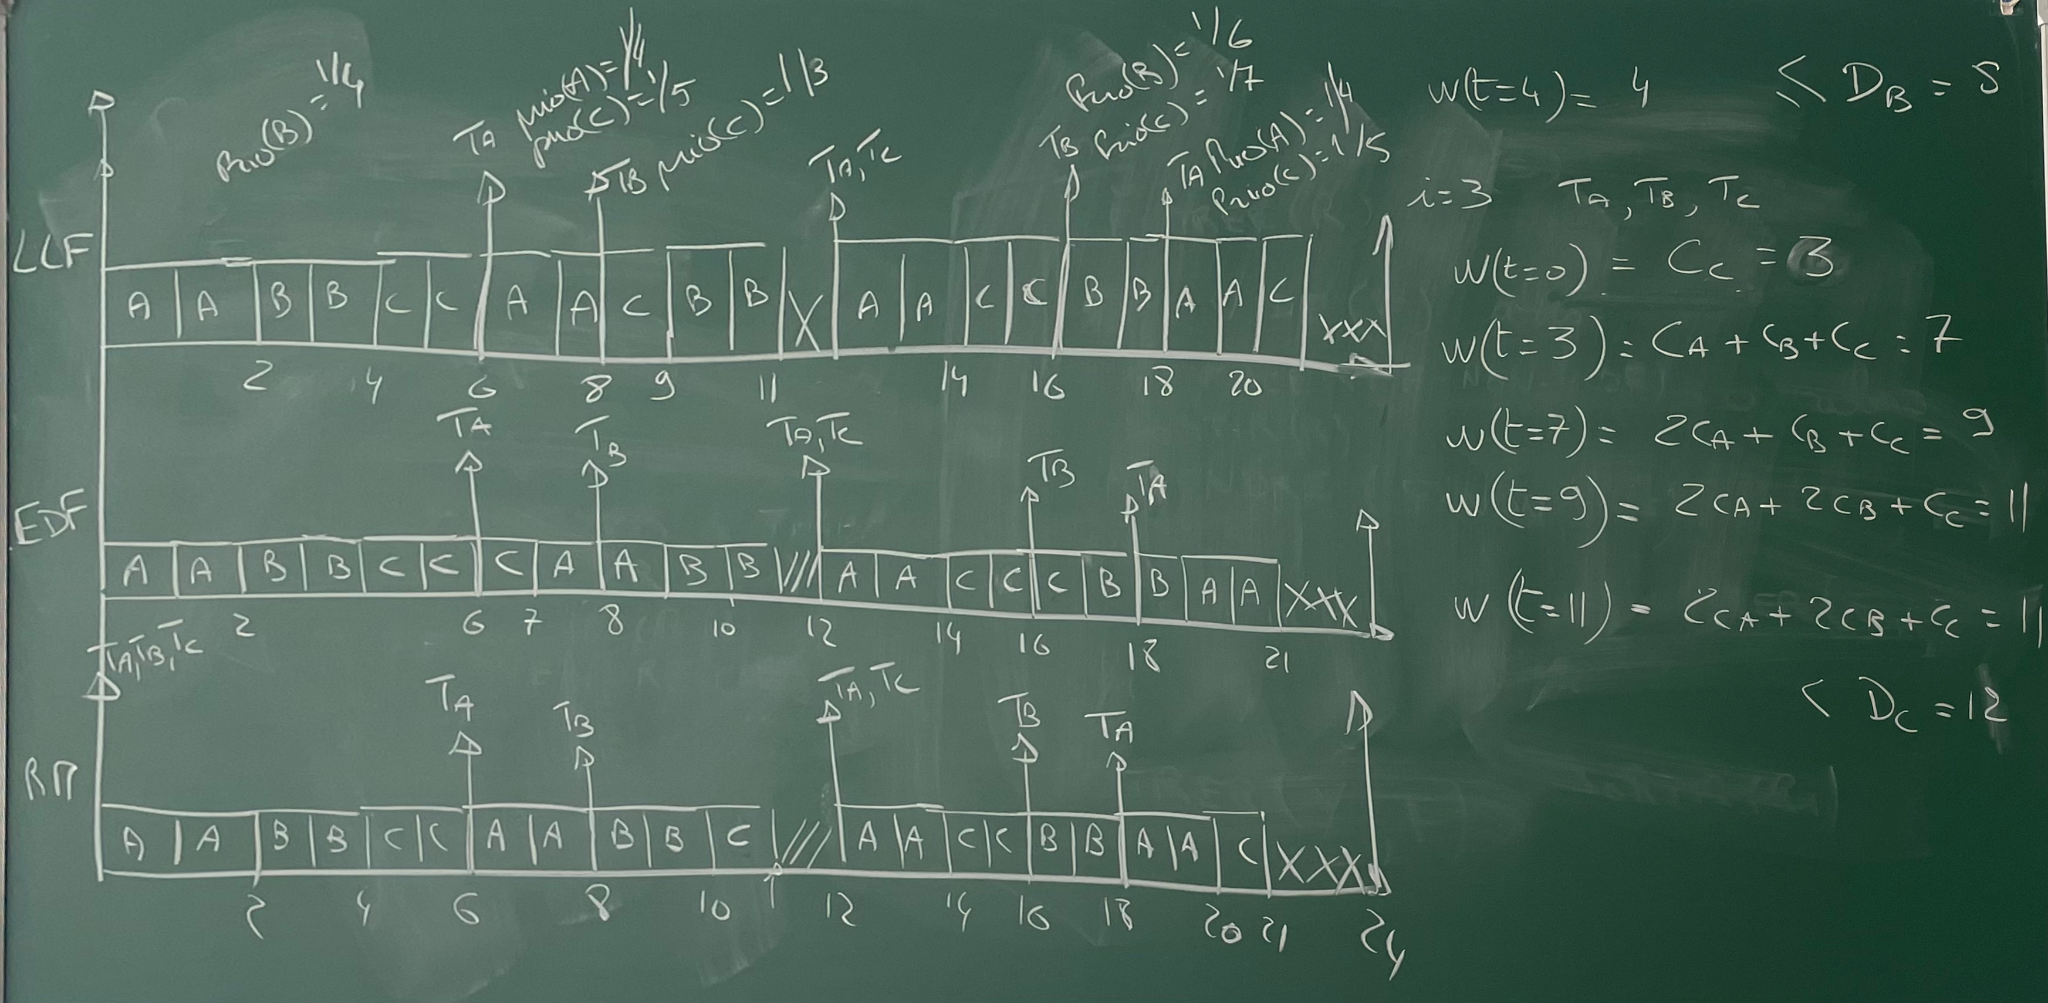 Prio(B) = 1/4
TA
prio(A) = 1/4
prio(C) = 1/5
TB prio(C) = 1/3
TA, TC
Prio(B) = 1/6
TB Prio(C) = 1/7
TA Prio(A) = 1/4
Prio(C) = 1/5
LLF
A A B B C C A A C B B X A A C C B B A A C XXX
2 4 6 8 9 11 14 16 18 20
TA TB TA, TC TB TA
EDF
A A B B C C C A A B B /// A A C C C B B A A XXX
2 6 7 8 10 12 14 16 18 21
TA, TB, TC
TA TB TA, TC TB TA
RM
A A B B C C A A B B C /// A A C C B B A A C XXX
2 4 6 8 10 12 14 16 18 20 21 24
w(t=4) = 4 ≤ DB = 8
i=3 TA, TB, TC
w(t=0) = CC = 3
w(t=3) = CA + CB + CC = 7
w(t=7) = 2CA + CB + CC = 9
w(t=9) = 2CA + 2CB + CC = 11
w(t=11) = 2CA + 2CB + CC = 11
< DC = 12